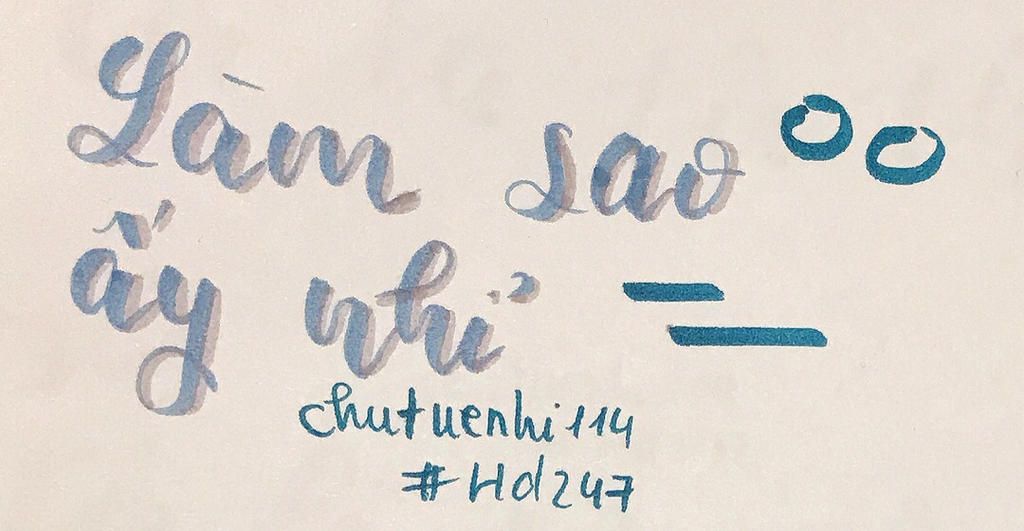 Làm sao
ấy nhỉ
chutuenhi114
#Hd247